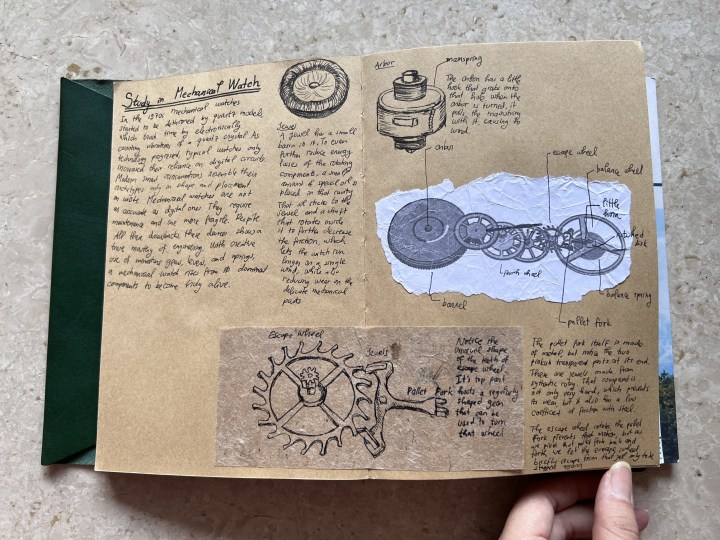 Study in Mechanical Watch
In the 1970s mechanical watches
started to be determined by quartz models
which track time by electronically
counting vibrations of a quartz crystal. As
technology progressed, typical watches only
increased their reliance on digital circuits.
Modern smart resemble their
prototypes only in shape and placement
on wrists. Mechanical watches are not
as accurate as digital ones. They require
maintenance and are more fragile. Despite
All these drawbacks these devices show a
true mastery of engineering. With creative
use of miniature gears, levers, and springs,
a mechanical watch rises from its dormant
components to become truly alive.
Jewel
A jewel has a small
basin in it, to even
further reduce energy
losses of the rotating
components. a small
amount of special oil is
placed in that cavity
That oil sticks to the
jewel and a shaft
that rotates inside
it to further decrease
the friction, which
lets the watch run
longer on a single
wind, while also
reducing wear on the
delicate mechanical
parts
Arbor
mainspring
The arbor has a little
hook that grabs onto
that hole when the
arbor is turned, it
pulls the mainspring
with it causing its
wind.
arbor
escape wheel
balance wheel
little
fourth wheel
balance spring
barrel
pallet fork
Escape Wheel
Jewels
Pallet Fork
Notice the
unusual shape
of the teeth of
escape wheel
It's top part
hosts a regularly
shaped gear
that can be
used to turn
that wheel
The pallet fork itself is made
of metal, but notice the two
pinkish transparent parts at its end.
These are jewels made from
synthetic ruby. That component is
not only very hard, which prevents
its wear, but it also has a low
coefficient of friction with steel.
The escape wheel rotates, the pallet
fork prevents that motion, but as
we that pallet fork back and
forth, we let the escape wheel
briefly escape from that only to be
stopped again